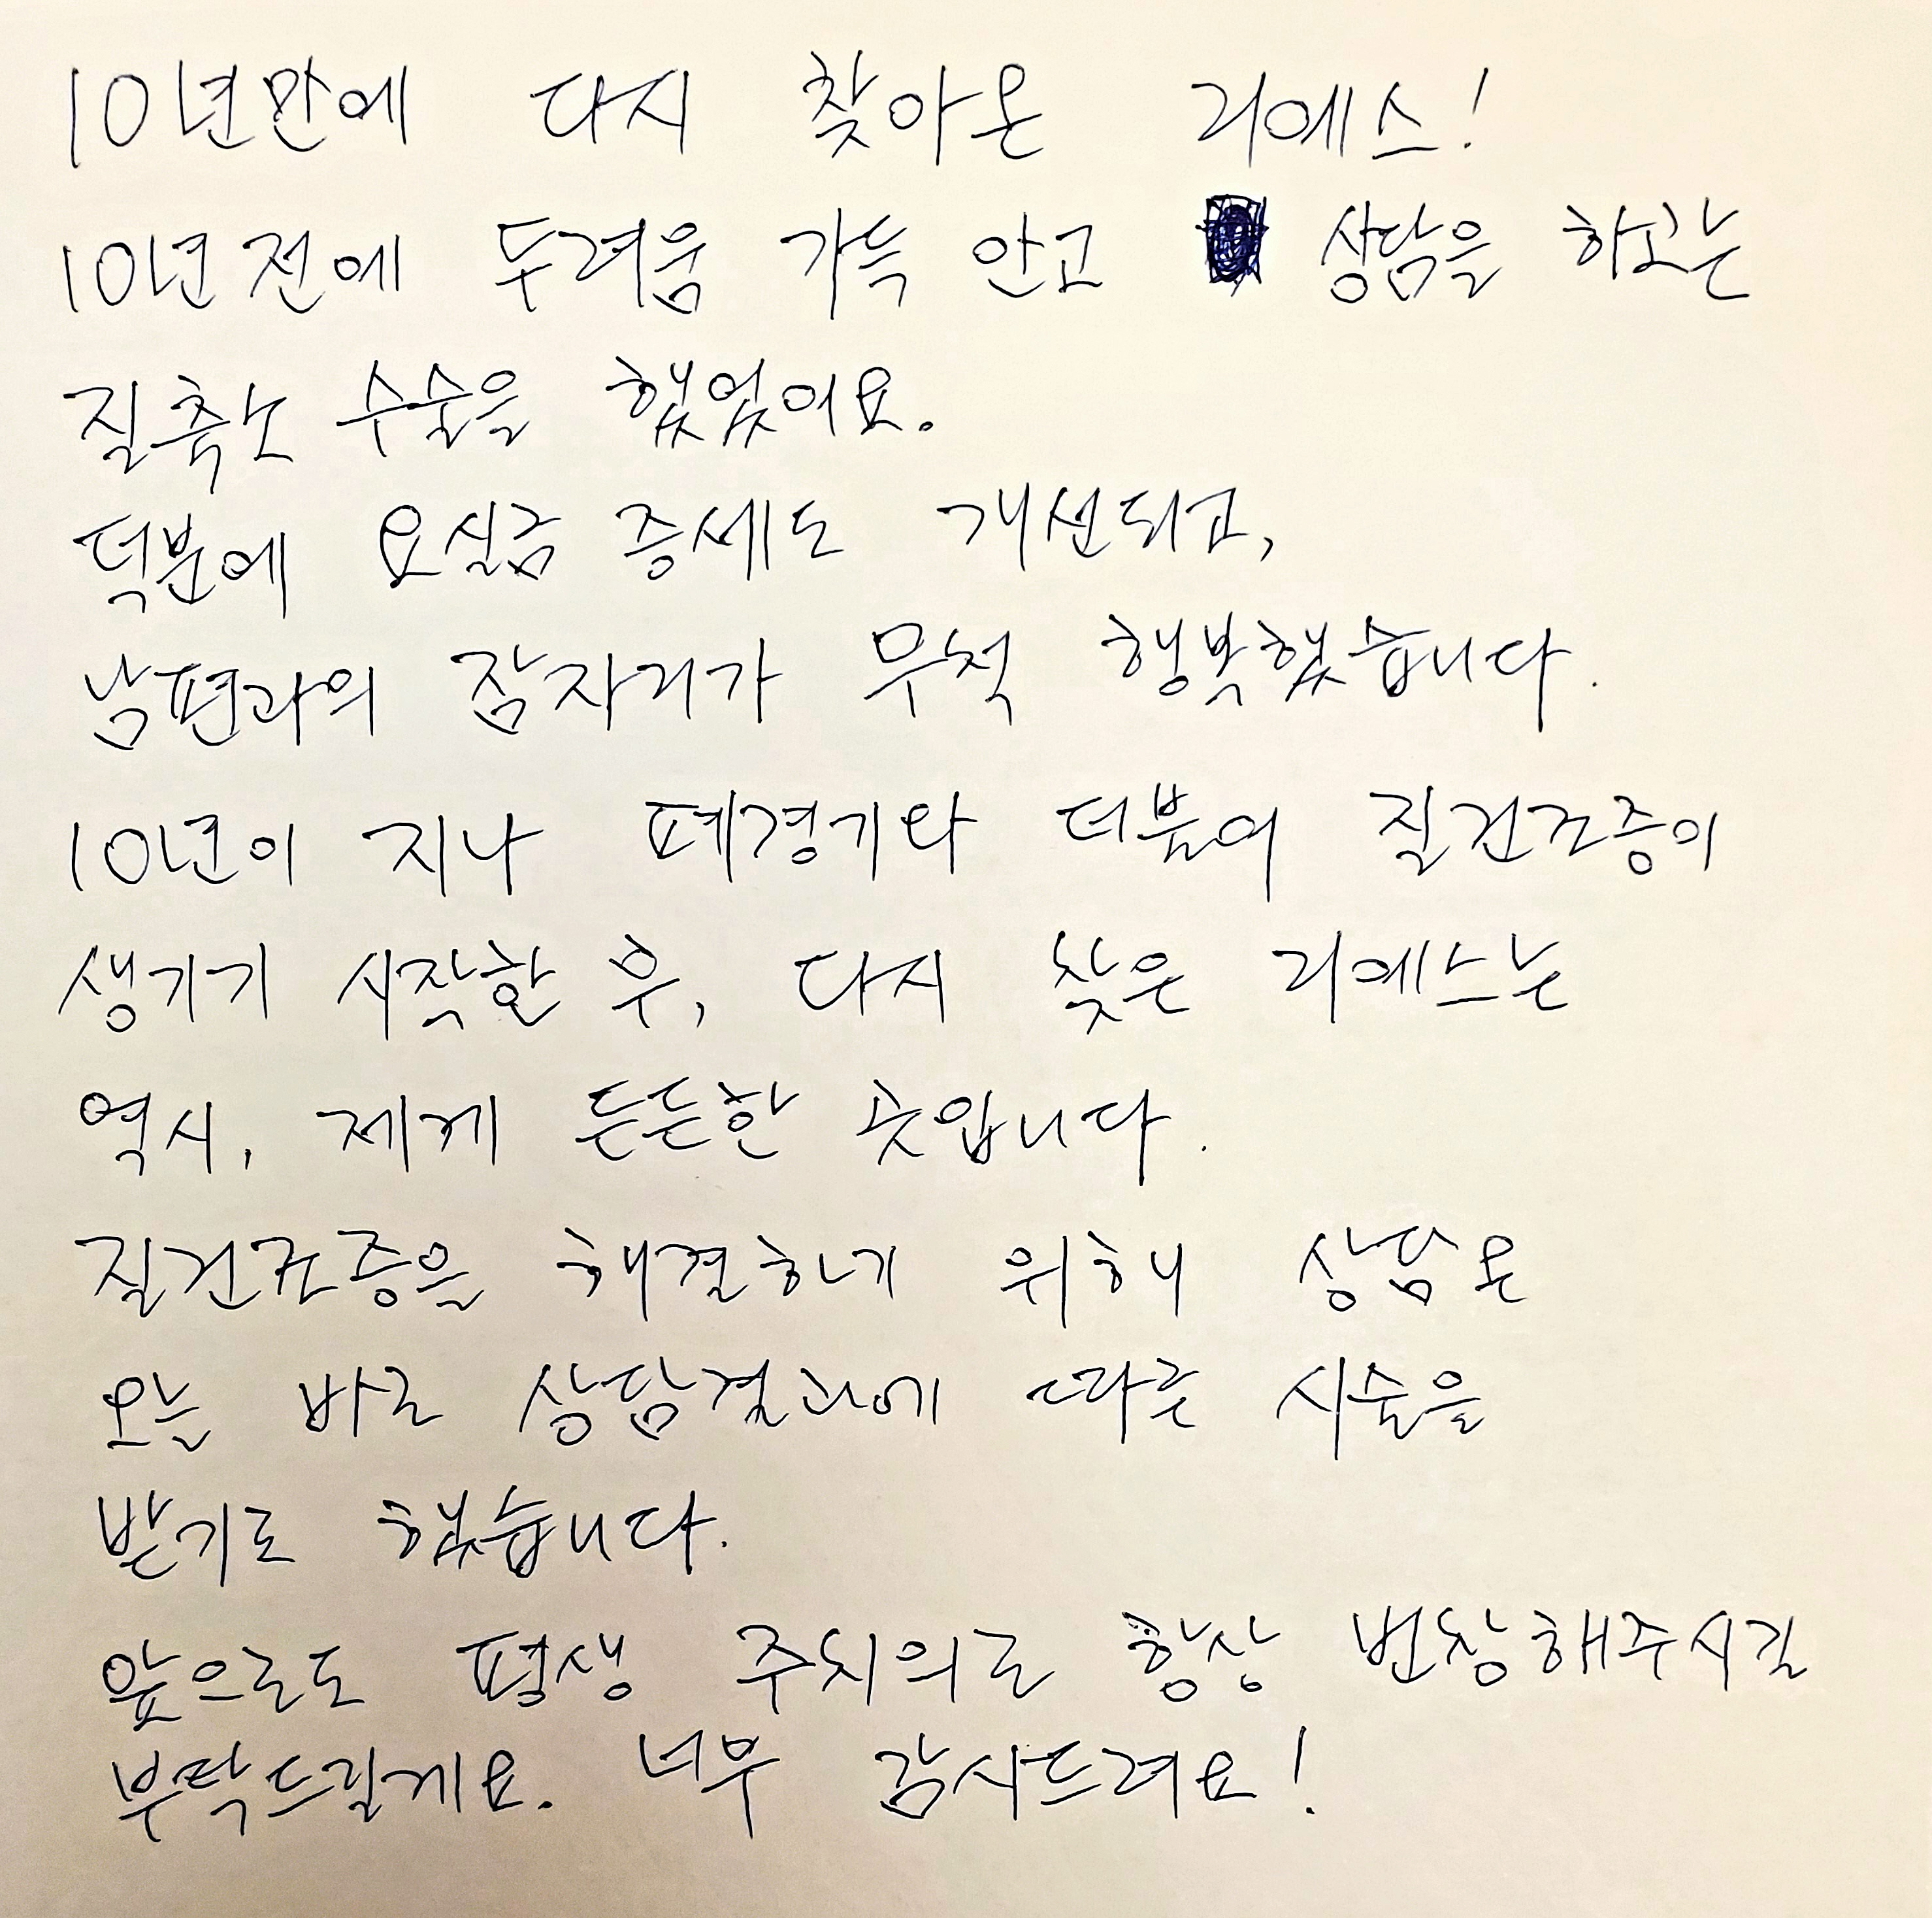 10년만에 다시 찾아온 리에스!
10년 전에 두려움 가득 안고 상담을 하고는
질축소 수술을 했었어요.
덕분에 요실금 증세도 개선되고,
남편과의 잠자리가 무척 행복했습니다.
10년이 지나 폐경기와 더불어 질건조증이
생기기 시작한 후, 다시 찾은 리에스는
역시, 제게 든든한 곳입니다.
질건조증을 해결하기 위해 상담온
오늘 바로 상담결과에 따른 시술을
받기로 했습니다.
앞으로도 평생 주치의로 항상 번창해주시길
부탁드릴게요. 너무 감사드려요!